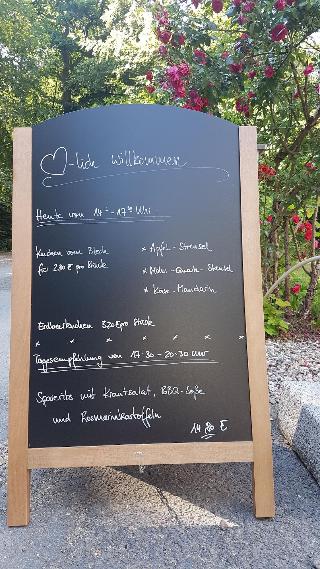 ♡-lich Willkommen
Heute von 14 - 17 Uhr
Kuchen vom Blech
für 2.80 € pro Stück
x Apfel - Streusel
x Mohn - Quark - Streusel
x Käse - Mandarin
Erdbeerkuchen 3.20 € pro Stück
x x x x x x x
Tagesempfehlung von 17:30 - 20:30 Uhr
Spareribs mit Krautsalat, BBQ-Soße
und Rosmarinkartoffeln
14.80 €